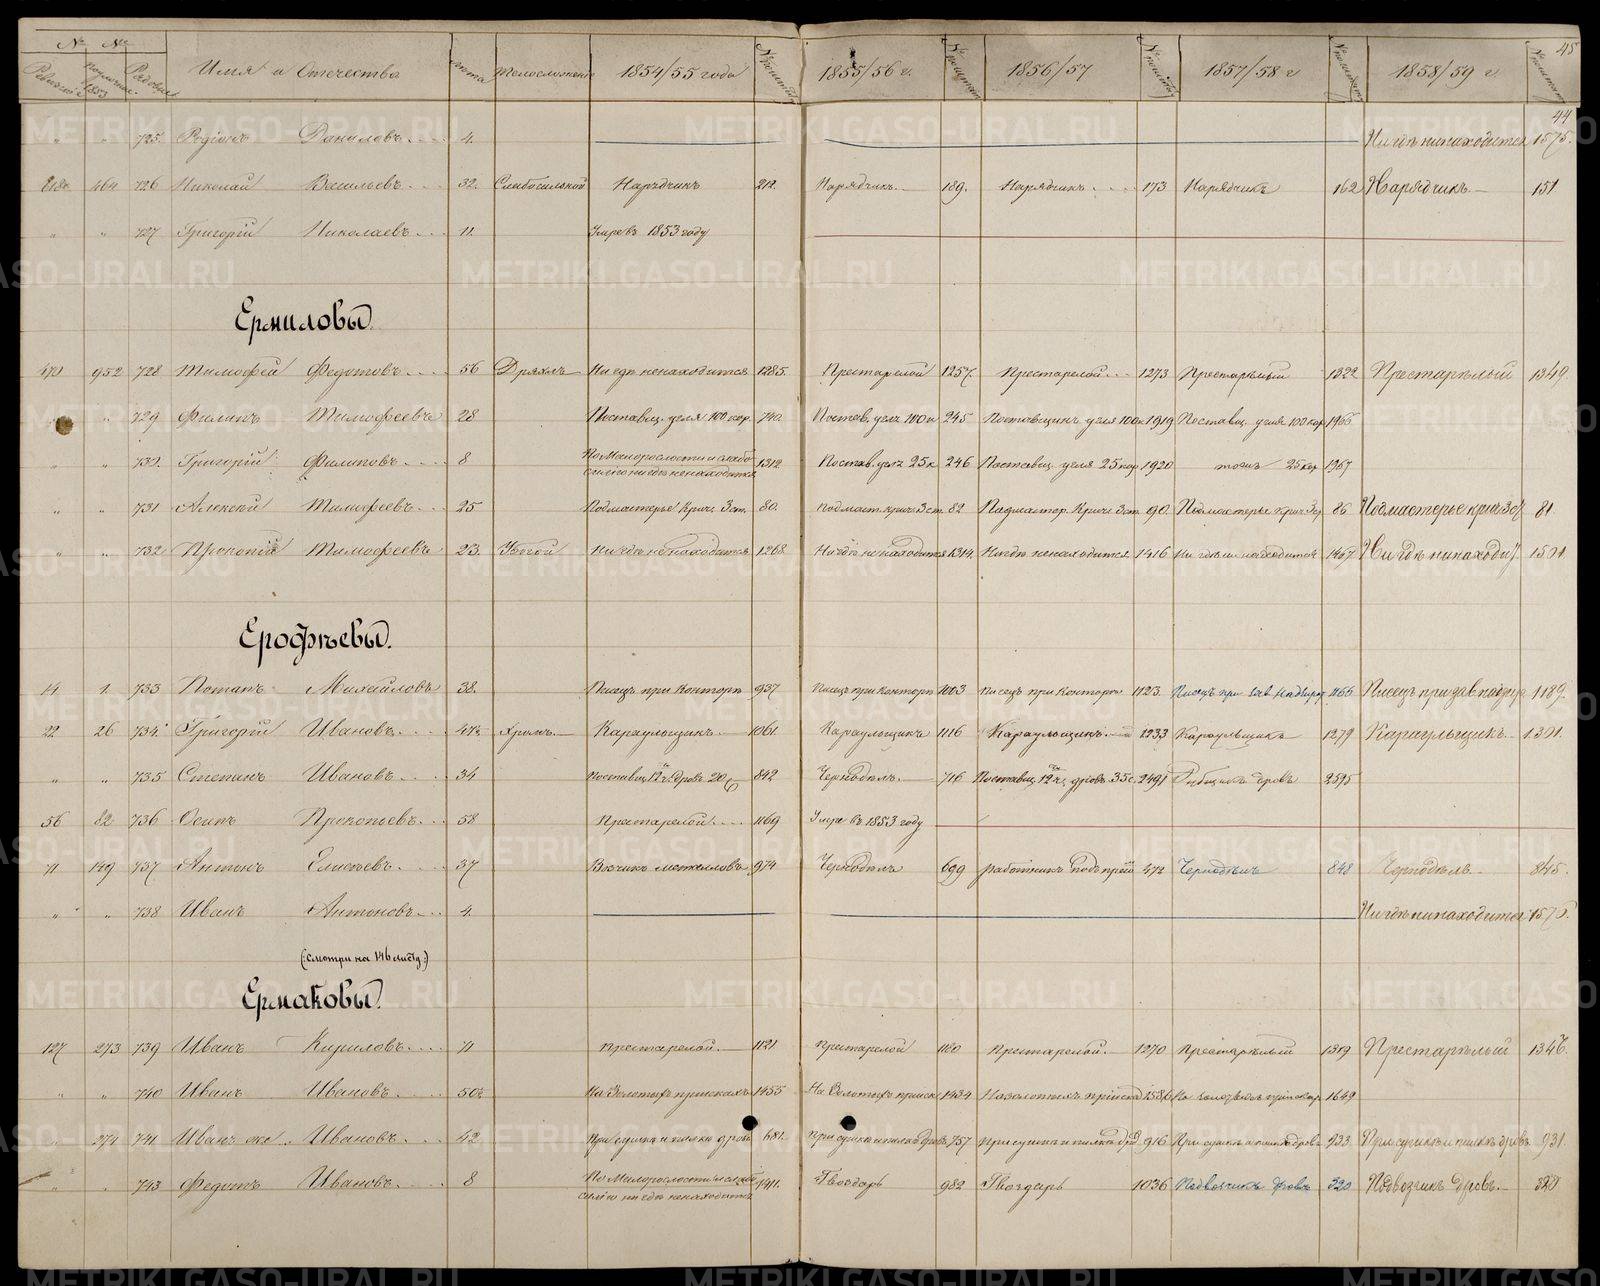 45
№ № Имя и Отечество лета Телосложение 1854/55 года 1855/56 г. 1856/57 1857/58 г 1858/59 г
44
" " 725. Родіонъ Даниловъ 4. Нигдѣ нинаходится 1575.
464 726 Николай Васильевъ 32. Слабосильной Нарядчикъ 212. Нарядчикъ 189. Нарядчикъ 173 Нарядчикъ 162 Нарядчикъ 151
" " 727 Григорій Николаевъ 11. Умре въ 1853 году
Ермиловы.
470 952 728 Тимофей Федотовъ 56 Дряхлъ Ни гдѣ ненаходится 1285. Престарелой 1257. Престарелой 1273 Престарѣлый 1322 Престарѣлый 1349.
" 729 Филипъ Тимофеевъ 28 Поставщ. угля 100 кор. 740. Постав. угля 100 к 245 Поставщикъ угля 100 к 1919 Поставщ. угля 100 кор 1966
" " 730. Григорій Филиповъ 8 По Малорослости и слабо
силію нигдѣ ненаходится 1312 Постав. угля 25 к. 246 Поставщ угля 25 кор 1920 тожъ 25 кор 1967
" " 731 Алексей Тимофеевъ 25 Подмастерье Крич. 3 ст. 80. подмаст. крич. 3 ст. 82 Падмастер. Крич. 3 ст. 90. Подмастерье крич 3 ст 86 Подмастерье крич 3 ст 81
" " 732 Прокопій Тимофеевъ 23. Убогой Ни гдѣ не находится 1268 Нигдѣ не находится 1314. Нигдѣ ненаходится 1416 Ни гдѣ не находится 1467 Ни гдѣ нинаходи 1501
Ерофѣевы.
14 1. 733 Потапъ Михайловъ 38. Писецъ при Конторѣ 937 Писецъ при конторѣ 1003 Писецъ при Конторѣ 1123. Писецъ при 1166 Писецъ при 1189.
22. 26 734. Григорій Ивановъ 47½ Хромъ Караульщикъ 1061. Караульщикъ 1116 Караульщикъ 1233 Караульщикъ 1279 Караульщикъ 1301.
" " 735 Степанъ Ивановъ 34 Поставщ 12 ч. дровъ 20 с 842 Чернодѣлъ. 716 Поставщ 12 ч. дровъ 35 с. 2491 Рубщикъ дровъ 2595
56 82 736 Осипъ Прокопьевъ 58 Престарелой 1169 Умре въ 1853 году
71 149 737 Антонъ Елисѣевъ 37 Возчикъ металловъ 974 Чернодѣлъ 699 работникъ 472 Чернодѣлъ 848 Чернодѣлъ 845.
" " 738 Иванъ Антоновъ 4. Нигдѣ нинаходится 1576.
(смотри на 146 листу.)
Ермаковы.
127 273 739 Иванъ Кириловъ 71 престарелой. 1121 Престарелой 1180 Престарелой. 1270 Престарѣлый 1319 Престарѣлый 1346.
" " 740 Иванъ Ивановъ 50½ На Золотыхъ прискахъ 1455 На Золотыхъ приск 1434 Назолотыхъ 1586 На 1649
" 274 741 Иванъ же Ивановъ 42 При сушкѣ и пилкѣ дровъ 681. При сушкѣ и пилкѣ дровъ 757 при сушкѣ и пилкѣ др 916 При сушкѣ и пилкѣ дровъ 933 При сушкѣ и пилкѣ дровъ 931.
" 743 Федотъ Ивановъ 8 По Малорослости и слабо
силію ни гдѣ ненаходится 1411. Гвоздарь 982 Гвоздарь 1036 Подвозчикъ дровъ 320 Подвозчикъ дровъ. 320
METRIKI.GASO-URAL.RU